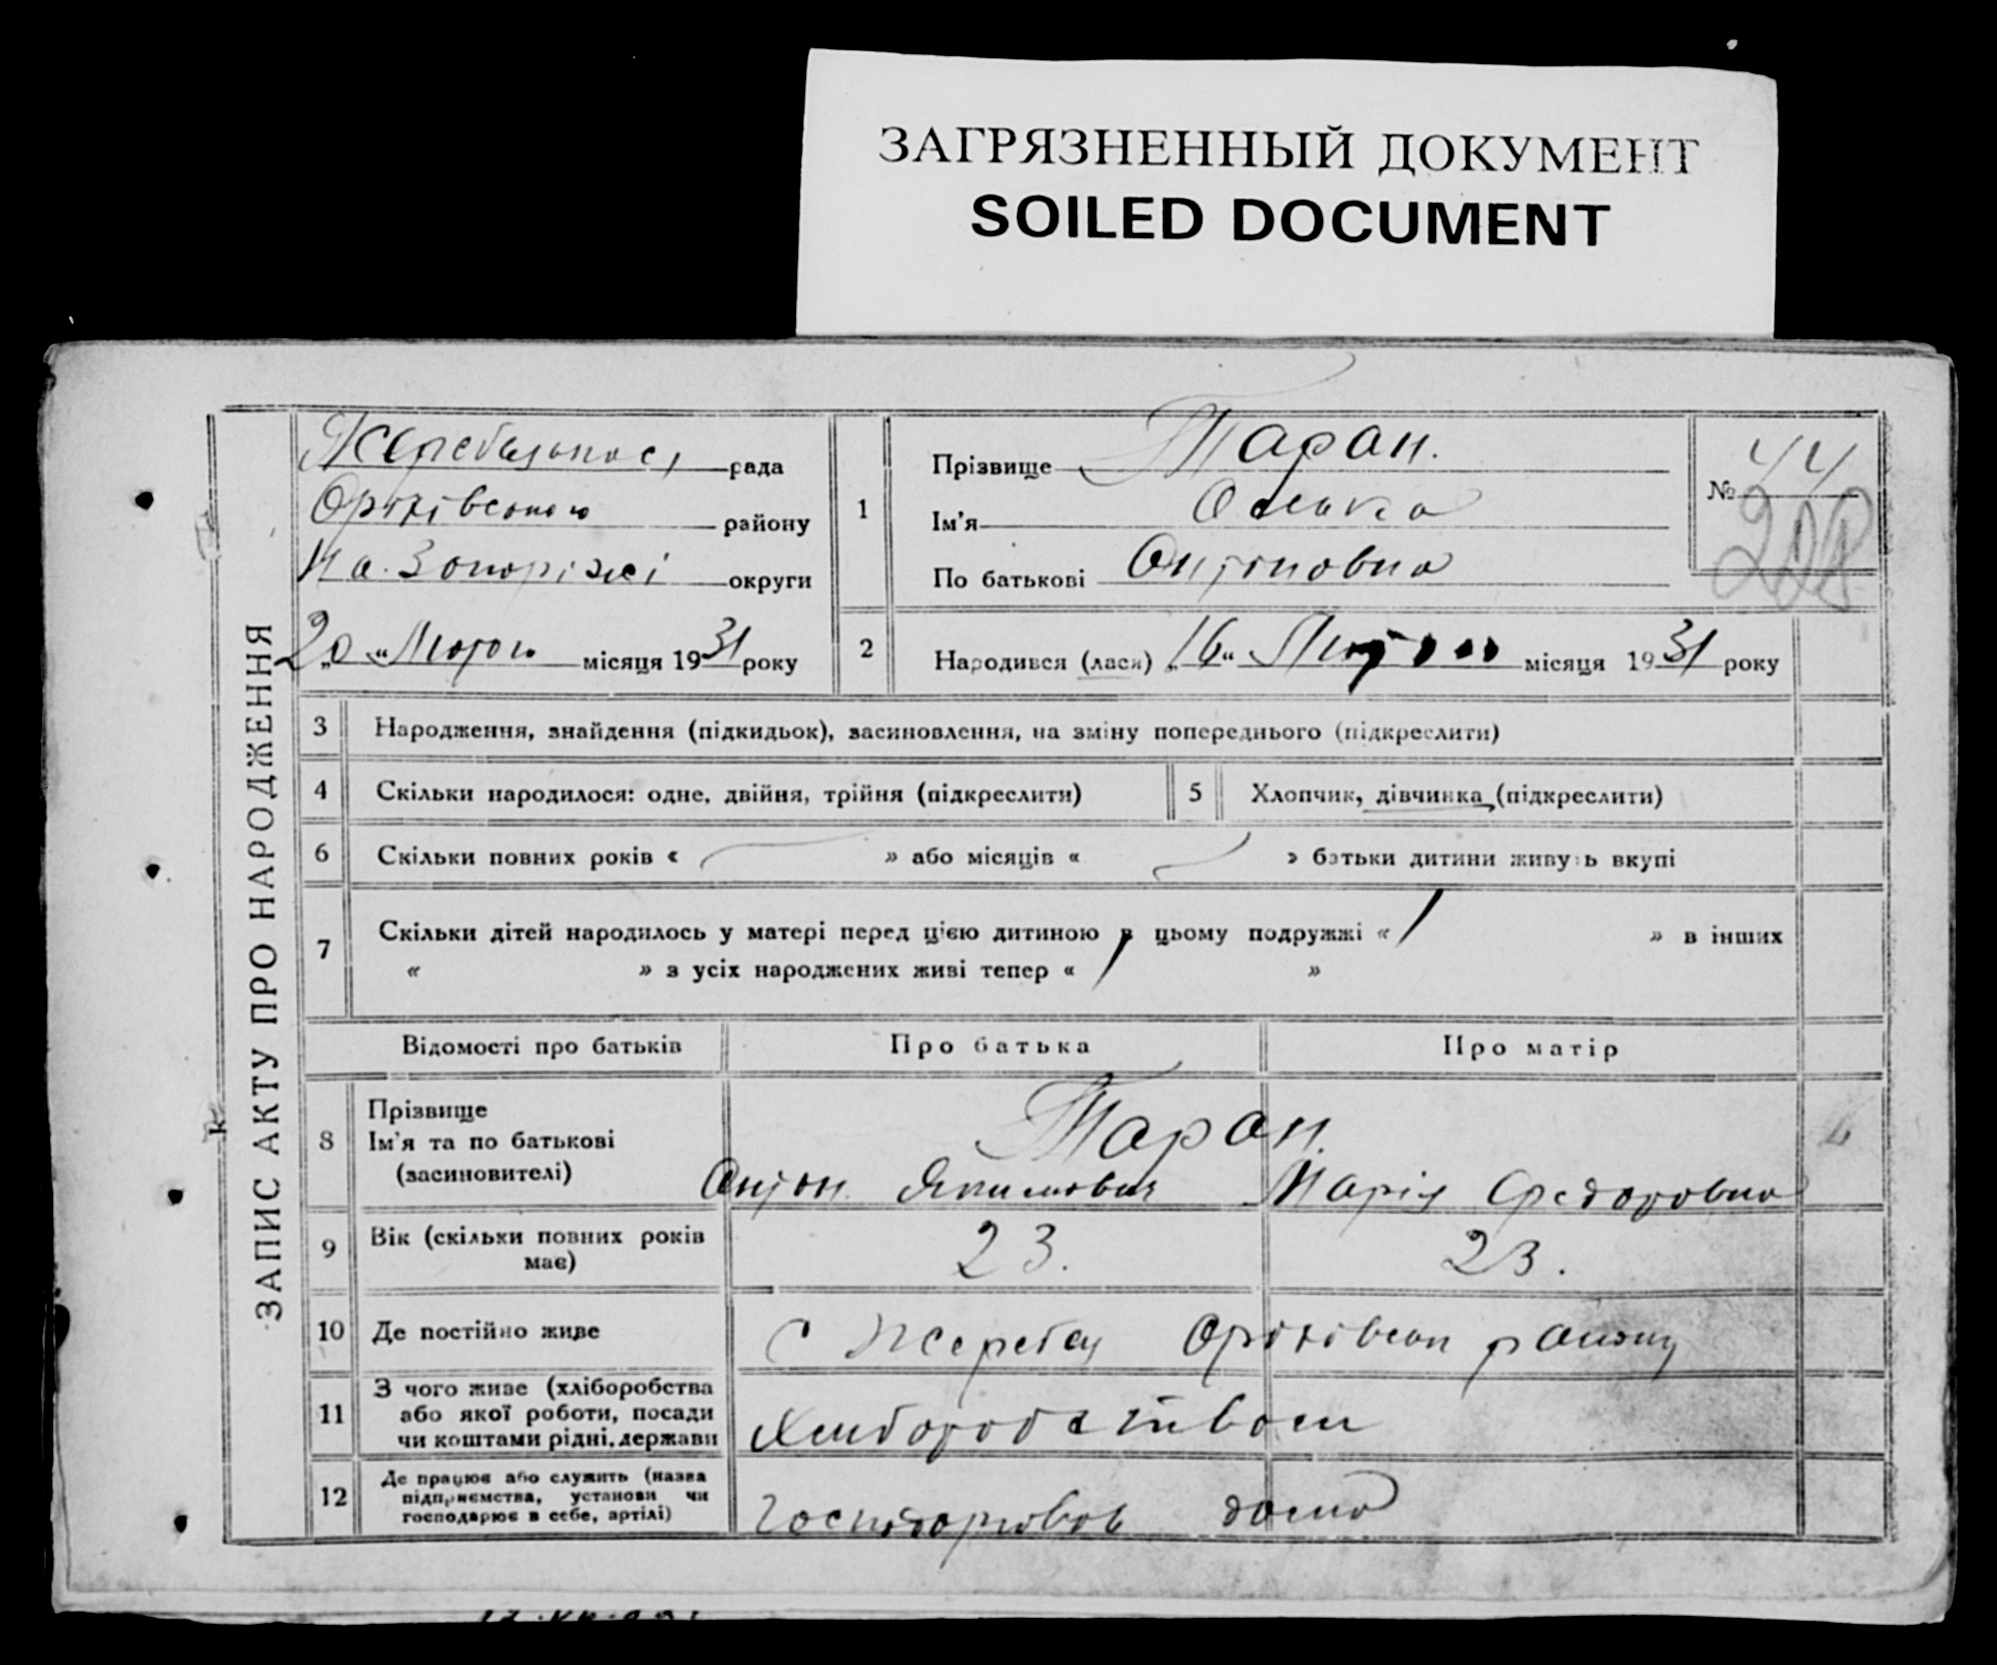 ЗАГРЯЗНЕННЫЙ ДОКУМЕНТ
SOILED DOCUMENT
ЗАПИС АКТУ ПРО НАРОДЖЕННЯ
рада
району
На Запоріжі округи
„20“ Лютого місяця 1931 року
1
Прізвище Таран.
Ім'я
По батькові Онтоновна
№ 44
208
2 Народився (лася) „16“ Лютого місяця 1931 року
3 Народження, знайдення (підкидьок), засиновлення, на зміну попереднього (підкреслити)
4 Скільки народилося: одне, двійня, трійня (підкреслити)
5 Хлопчик, дівчинка (підкреслити)
6 Скільки повних років « » або місяців « » батьки дитини живуть вкупі
7 Скільки дітей народилось у матері перед цією дитиною в цьому подружжі « 1 » в інших
« » з усіх народжених живі тепер « 1 »
Відомості про батьків Про батька Про матір
8 Прізвище
Ім'я та по батькові
(засиновителі)
Таран.
Антон Якимович Марія Федоровна
9 Вік (скільки повних років
має)
23. 23.
10 Де постійно живе
с Жеребец Оріхівськ району
11 З чого живе (хліборобства
або якої роботи, посади
чи коштами рідні, держави
Хлиборобством
12 Де працює або служить (назва
підприємства, установи чи
господарює в себе, артілі)
дома